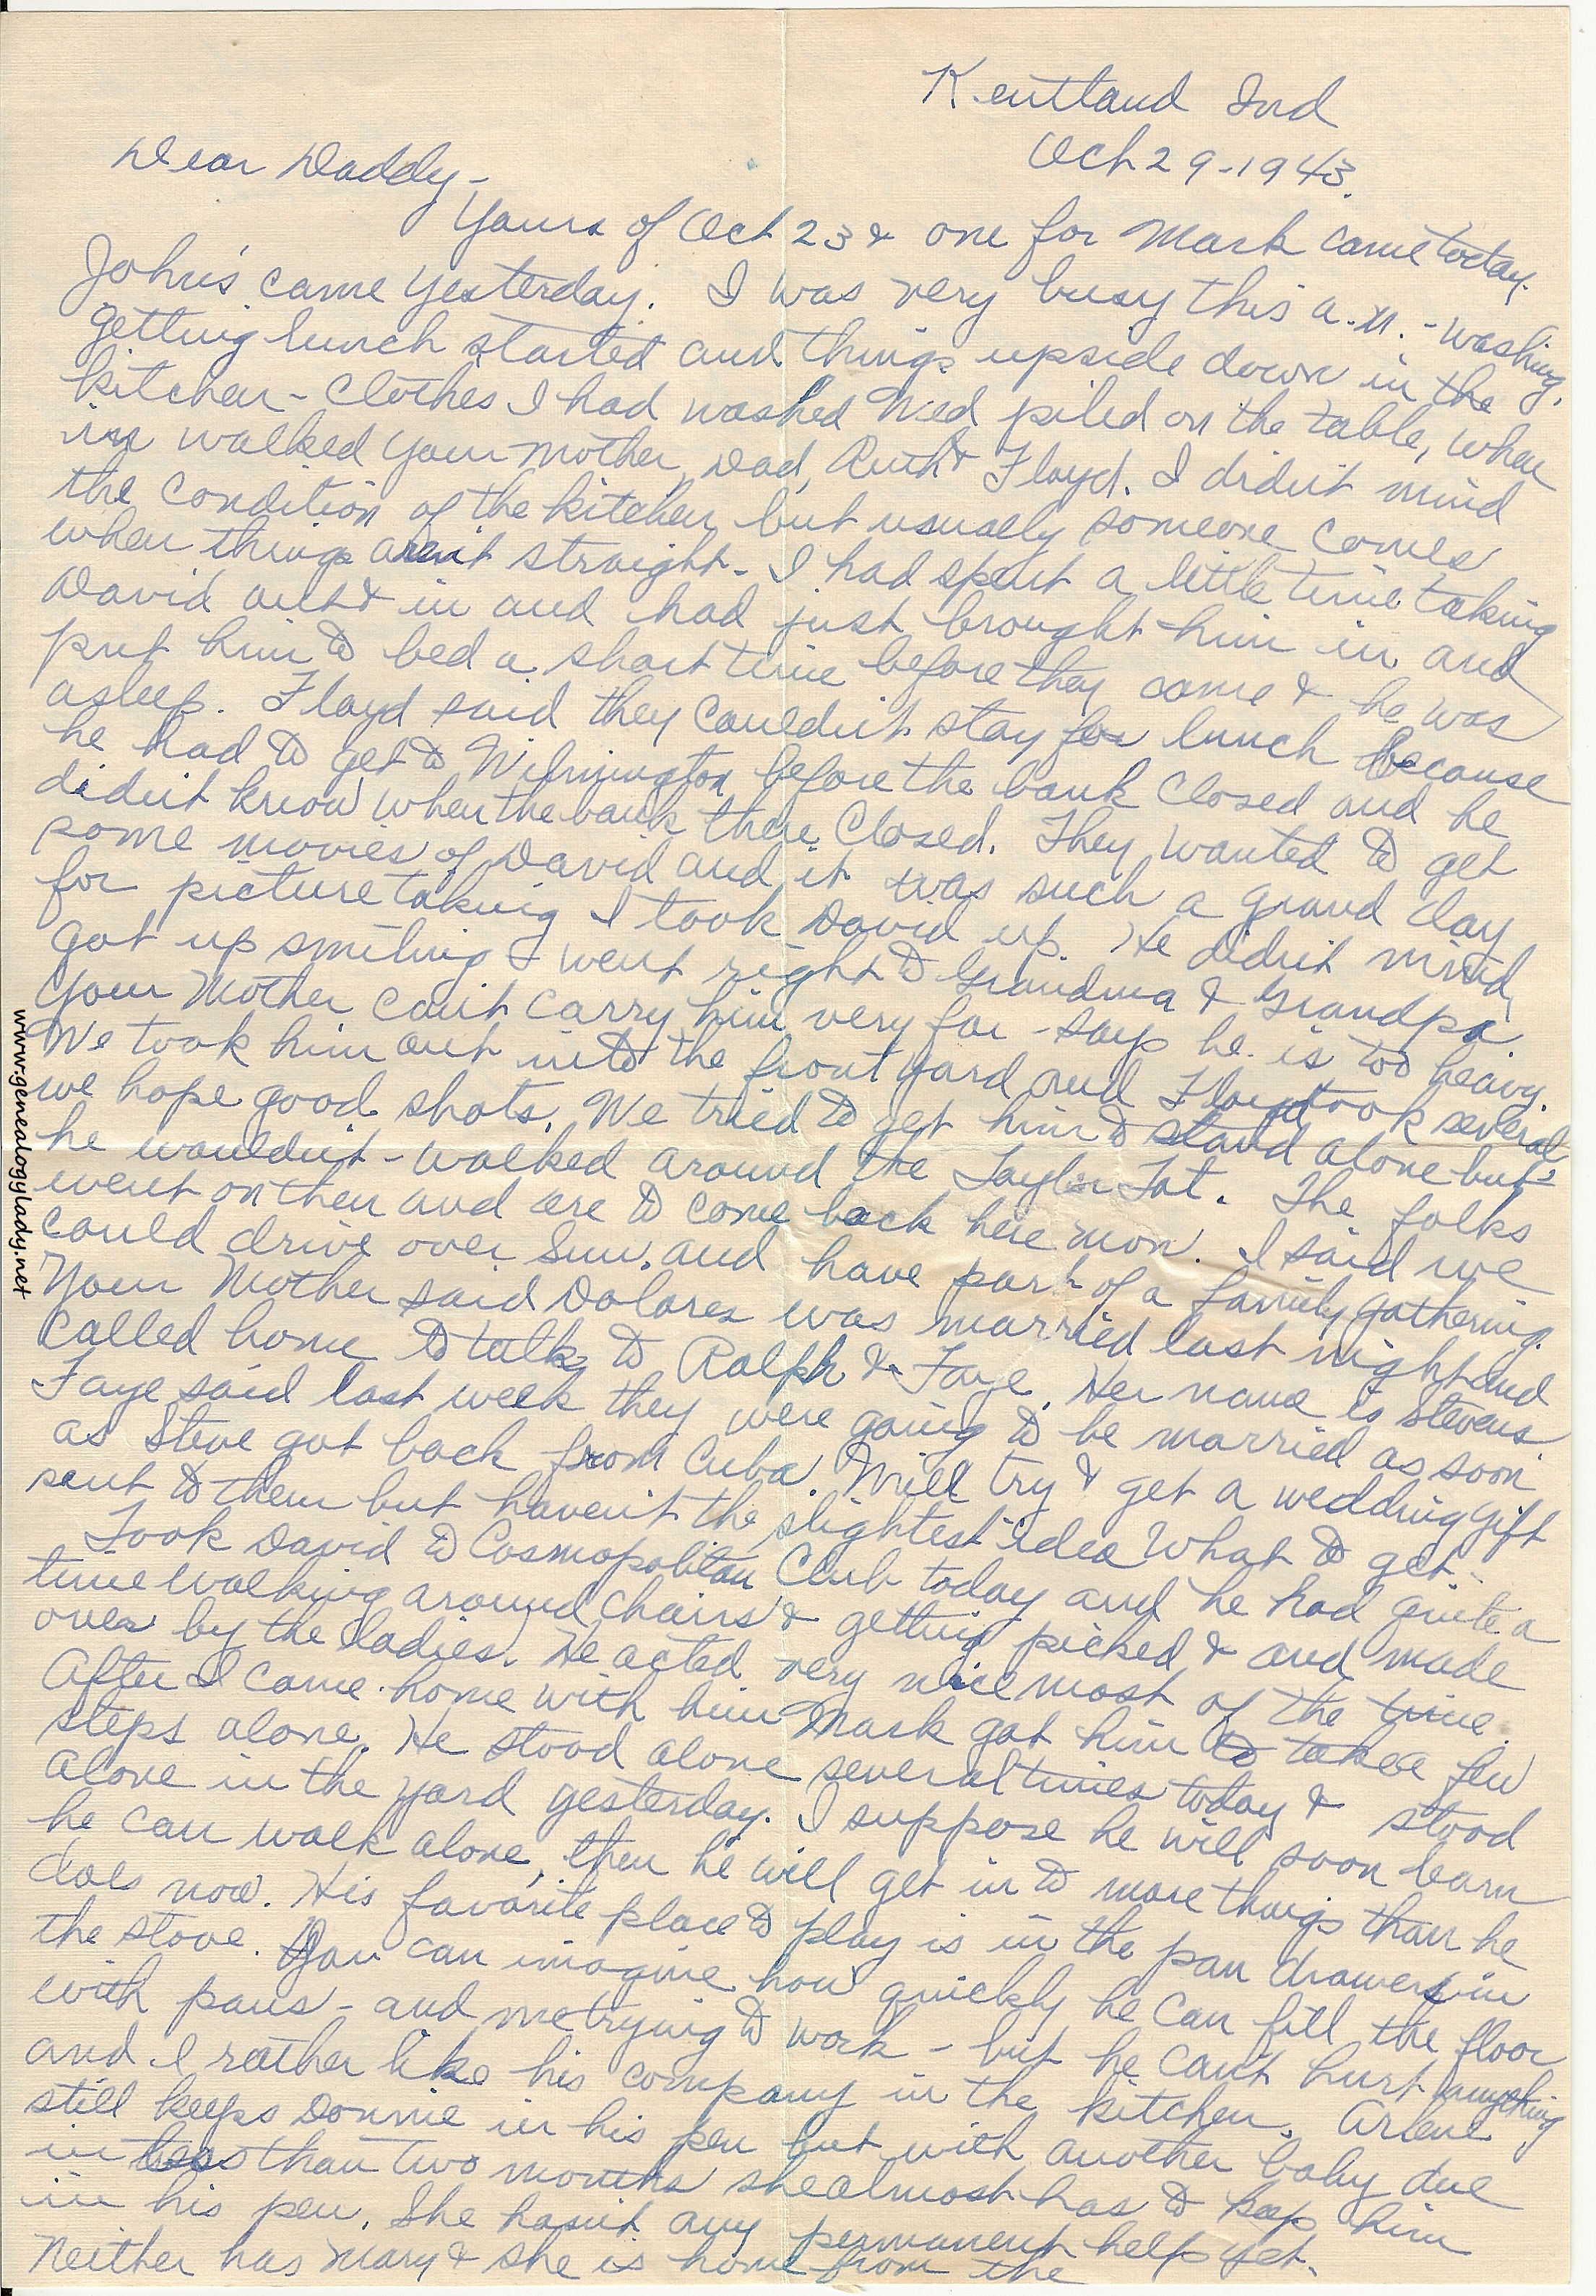 Kentland Ind
Oct 29-1943.
Dear Daddy-
Yours of Oct 23 & one for Mark came today.
John's came yesterday. I was very busy this a.m. - washing,
getting lunch started and things upside down in the
kitchen - clothes I had washed Wed piled on the table, when
in walked your Mother, Dad, Ruth & Floyd. I didn't mind
the condition of the kitchen but usually someone comes
when things aren't straight - I had spent a little time taking
David out & in and had just brought him in and
put him to bed a short time before they came & he was
asleep. Floyd said they couldn't stay for lunch because
he had to get to Wilmington before the bank closed and he
didn't know when the bank there closed. They wanted to get
some movies of David and it was such a grand day
for picture taking I took David up. He didn't mind,
got up smiling & went right to Grandma & Grandpa.
Your Mother can't carry him very far - says he is too heavy.
We took him out into the front yard and Floyd took several
we hope good shots. We tried to get him to stand alone but
he wouldn't - walked around the Taylor Tot. The folks
went on then and are to come back here Mon. I said we
could drive over Sun. and have part of a family gathering.
Your Mother said Dolores was married last night and
called home to talk to Ralph & Faye. Her name is Stevens.
Faye said last week they were going to be married as soon
as Steve got back from Cuba. Will try & get a wedding gift
sent to them but haven't the slightest idea what to get.
Took David to Cosmopolitan Club today and he had quite a
time walking around chairs & getting picked & and made
over by the ladies. He acted very nice most of the time.
After I came home with him Mark got him to take a few
steps alone. He stood alone several times today & stood
alone in the yard yesterday. I suppose he will soon learn
he can walk alone, then he will get in to more things than he
does now. His favorite place to play is in the pan drawer in
the stove. You can imagine how quickly he can fill the floor
with pans - and me trying to work - but he can't hurt anything
and I rather like his company in the kitchen. Arlene
still keeps Donnie in his pen but with another baby due
in less than two months she almost has to keep him
in his pen. She hasn't any permanent help yet.
Neither has Mary & she is home from the
www.genealogylady.net